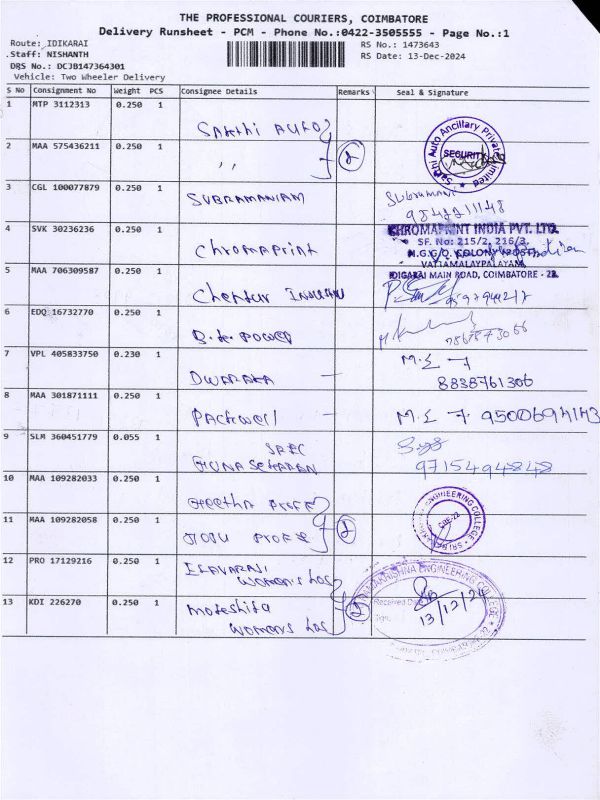 THE PROFESSIONAL COURIERS, COIMBATORE
Delivery Runsheet - PCM - Phone No.:0422-3505555 - Page No.:1
Route: IDIKARAI RS No.: 1473643
Staff: NISHANTH RS Date: 13-Dec-2024
DRS No.: DCJB147364301
Vehicle: Two Wheeler Delivery
S No Consignment No Weight PCS Consignee Details Remarks Seal & Signature
1 MTP 3112313 0.250 1 Sakthi Auto
2 MAA 575436211 0.250 1 ,, 2 Sakthi Auto Ancillary Private Limited SECURITY
3 CGL 100077879 0.250 1 SUBRAMANIAM Subramani
4 SVK 30236236 0.250 1 Chromaprint CHROMAPRINT INDIA PVT. LTD.
SF. No: 215/2, 216/3,
N.G.G.O. COLONY POST
VATTAMALAYPALAYAM,
IDIGARAI MAIN ROAD, COIMBATORE - 22.
5 MAA 706309587 0.250 1
6 EDQ 16732770 0.250 1 POWER
7 VPL 405833750 0.230 1 DWARAKA — M.S 7
8838761306
8 MAA 301871111 0.250 1 PACKWELL — M.S 7. 9500694143
9 SLM 360451779 0.055 1 SREC
GUNASEKARAN 9715494848
10 MAA 109282033 0.250 1 Geetha Profe
11 MAA 109282058 0.250 1 PROFE 2 ENGINEERING COLLEGE CBE-22
12 PRO 17129216 0.250 1 ILAVARASI
womens Hos
13 KDI 226270 0.250 1 womens Hos 2 RAMAKRISHNA ENGINEERING COLLEGE
Received Date
13/12/24